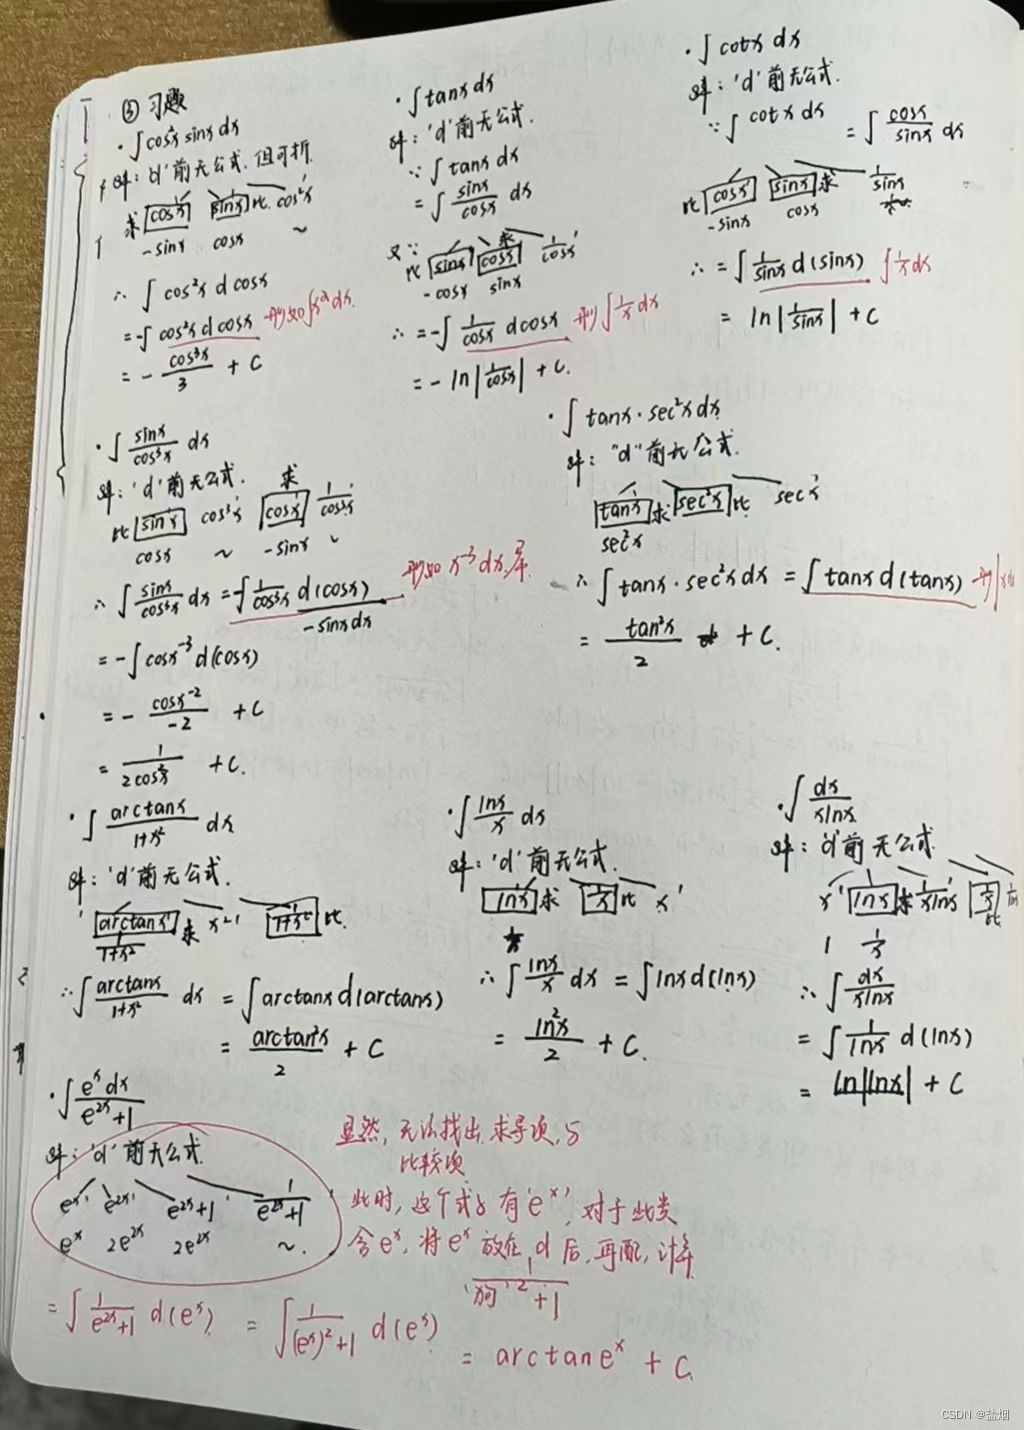 ③ 习题
· ∫cos²x sinx dx
解: 'd'前无公式. 但可拆.
求 cosx' sinx' 比 cos²x'
-sinx cosx ~
∴ ∫ cos²x d cosx
= -∫ cos²x d cosx 形如∫x^a dx.
= - cos³x/3 + C
· ∫tanx dx
解: 'd'前无公式.
∵ ∫ tanx dx
= ∫ sinx/cosx dx
又∵ 求
比 sinx' cosx' 1/cosx '
-cosx sinx
∴ = -∫ 1/cosx dcosx 形∫1/x dx
= - ln|1/cosx| + C.
· ∫ cotx dx
解: 'd'前无公式.
∵ ∫ cotx dx = ∫ cosx/sinx dx
比 cosx' sinx' 求 1/sinx
-sinx cosx
∴ = ∫ 1/sinx d(sinx) ∫1/x dx
= ln|1/sinx| + C
· ∫ sinx/cos³x dx
解: 'd'前无公式. 求
比 sinx' cos³x' cosx' 1/cos³x '
cosx ~ -sinx ~
∴ ∫ sinx/cos³x dx = -∫ 1/cos³x d(cosx) 形如 x⁻³ dx.
-sinx dx
= -∫ cosx⁻³ d(cosx)
= - cosx⁻²/-2 + C
= 1/2cos²x + C.
· ∫ tanx · sec²x dx
解: "d"前无公式.
tanx' 求 sec²x' 比 secx'
sec²x
∴ ∫ tanx · sec²x dx = ∫ tanx d(tanx)
= tan²x/2 + C.
· ∫ arctanx/1+x² dx
解: 'd'前无公式.
arctanx' 求 x²+1' 1/1+x² ' 比.
1/1+x²
∴ ∫ arctanx/1+x² dx = ∫ arctanx d(arctanx)
= arctan²x/2 + C
· ∫ lnx/x dx
解: 'd'前无公式.
lnx' 求 1/x 比 x'
1/x
∴ ∫ lnx/x dx = ∫ lnx d(lnx)
= ln²x/2 + C.
· ∫ dx/xlnx
解: 'd'前无公式.
x' lnx' 求 1/xlnx ' 1/x 比
1 1/x
∴ ∫ dx/xlnx
= ∫ 1/lnx d(lnx)
= ln|lnx| + C
· ∫ eˣdx/e²ˣ+1
解: 'd'前无公式.
eˣ' e²ˣ' e²ˣ+1' 1/e²ˣ+1 '
eˣ 2e²ˣ 2e²ˣ ~.
显然, 无法找出 求导项, 与
比较项
此时, 这个式子有'eˣ', 对于此类
含eˣ, 将eˣ放在 d 后, 再配, 计算
1/'狗'²+1
= ∫ 1/e²ˣ+1 d(eˣ) = ∫ 1/(eˣ)²+1 d(eˣ)
= arctan eˣ + C.
CSDN @盐烟